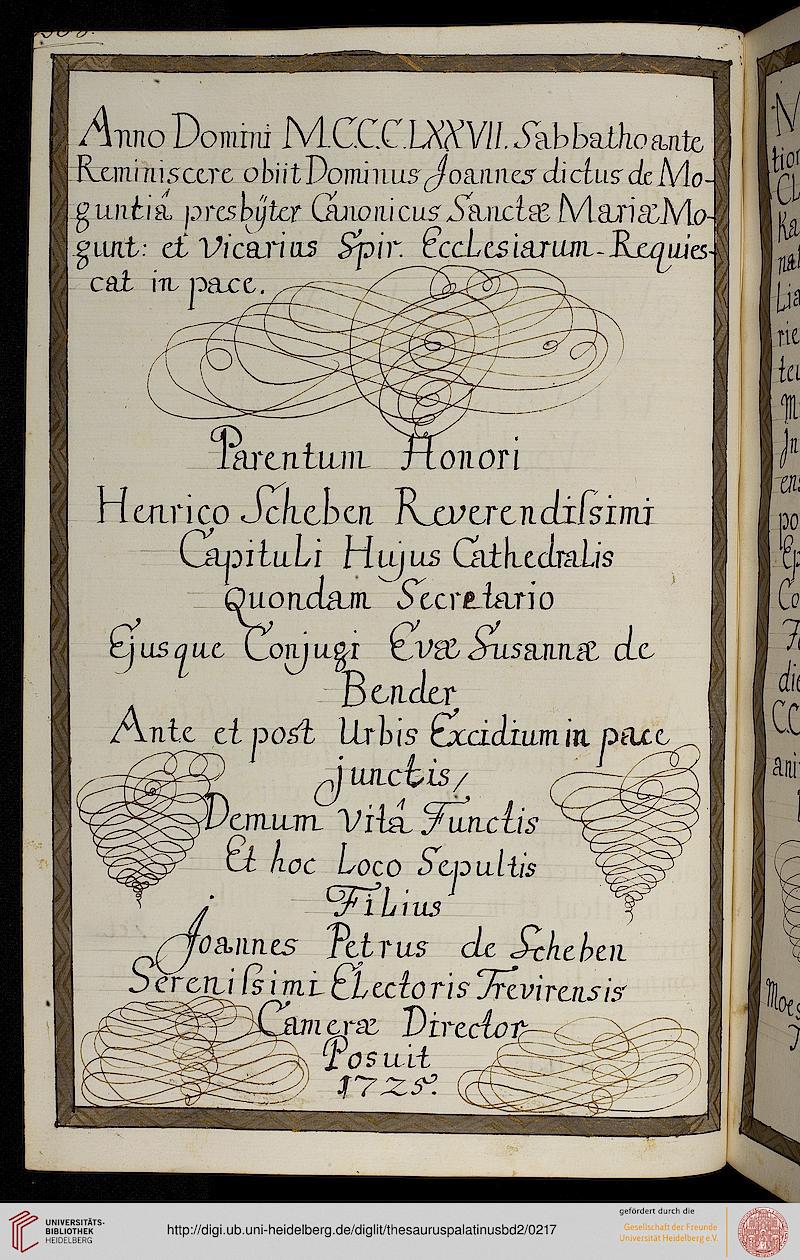 Anno Domini M.C.C.C.LXXVII. Sabbatho ante
Reminiscere obiit Dominus Joannes dictus de Mo-
guntiâ presbÿter Canonicus Sanctæ Mariæ Mo-
gunt: et Vicarius Spir. Ecclesiarum - Requies-
cat in pace.
Parentum Honori
Henrico Scheben Reverendiſsimi
Capituli Hujus Cathedralis
Quondam Secretario
Ejusque Conjugi Evæ Susannæ de
Bender
Ante et post Urbis Excidium in pace
junctis,
Demum Vitâ Functis
Et hoc Loco Sepultis
Filius
Joannes Petrus de Scheben
Sereniſsimi Electoris Trevirensis
Cameræ Director
Posuit
1725.
UNIVERSITÄTS-
BIBLIOTHEK
HEIDELBERG
http://digi.ub.uni-heidelberg.de/diglit/thesauruspalatinusbd2/0217
gefördert durch die
Gesellschaft der Freunde
Universität Heidelberg e.V.